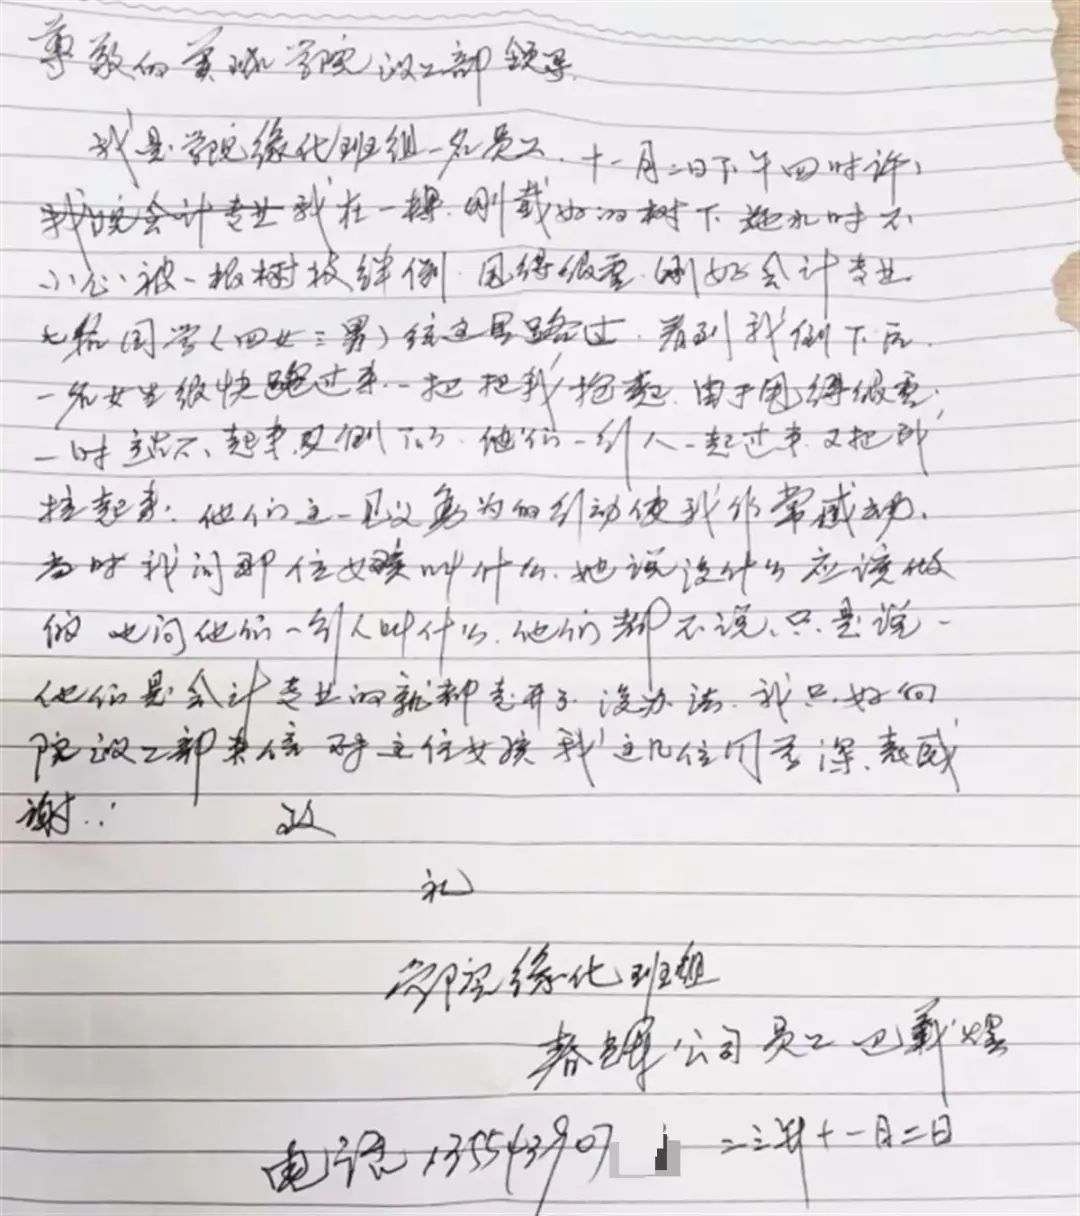 尊敬的黄珑学院议工部领导
我是学院绿化班组一名员工.十一月二日下午四时许,
我院会计专业我在一棵刚栽好的树下挖孔时不
小心被一根树枝绊倒.甩得很重.刚好会计专业
七名同学(四女三男)经这里路过.看到我倒下后.
一名女生很快跑过来.一把把我抱起.由于甩得很重.
一时站不起来.又倒下了.他们一行人一起过来又把我
拉起来.他们这一见义勇为的行动使我非常感动.
当时我问那位女孩叫什么.她说没什么应该做
的 也问他们一行人叫什么.他们都不说.只是说一
他们是会计专业的就都走开了.没办法.我只好向
院议工部来信 对于这位女孩和这几位同学深表感
谢..: 致
礼
学院绿化班组
春辉公司员工 巴载煜
电话135543907 二三年十一月二日